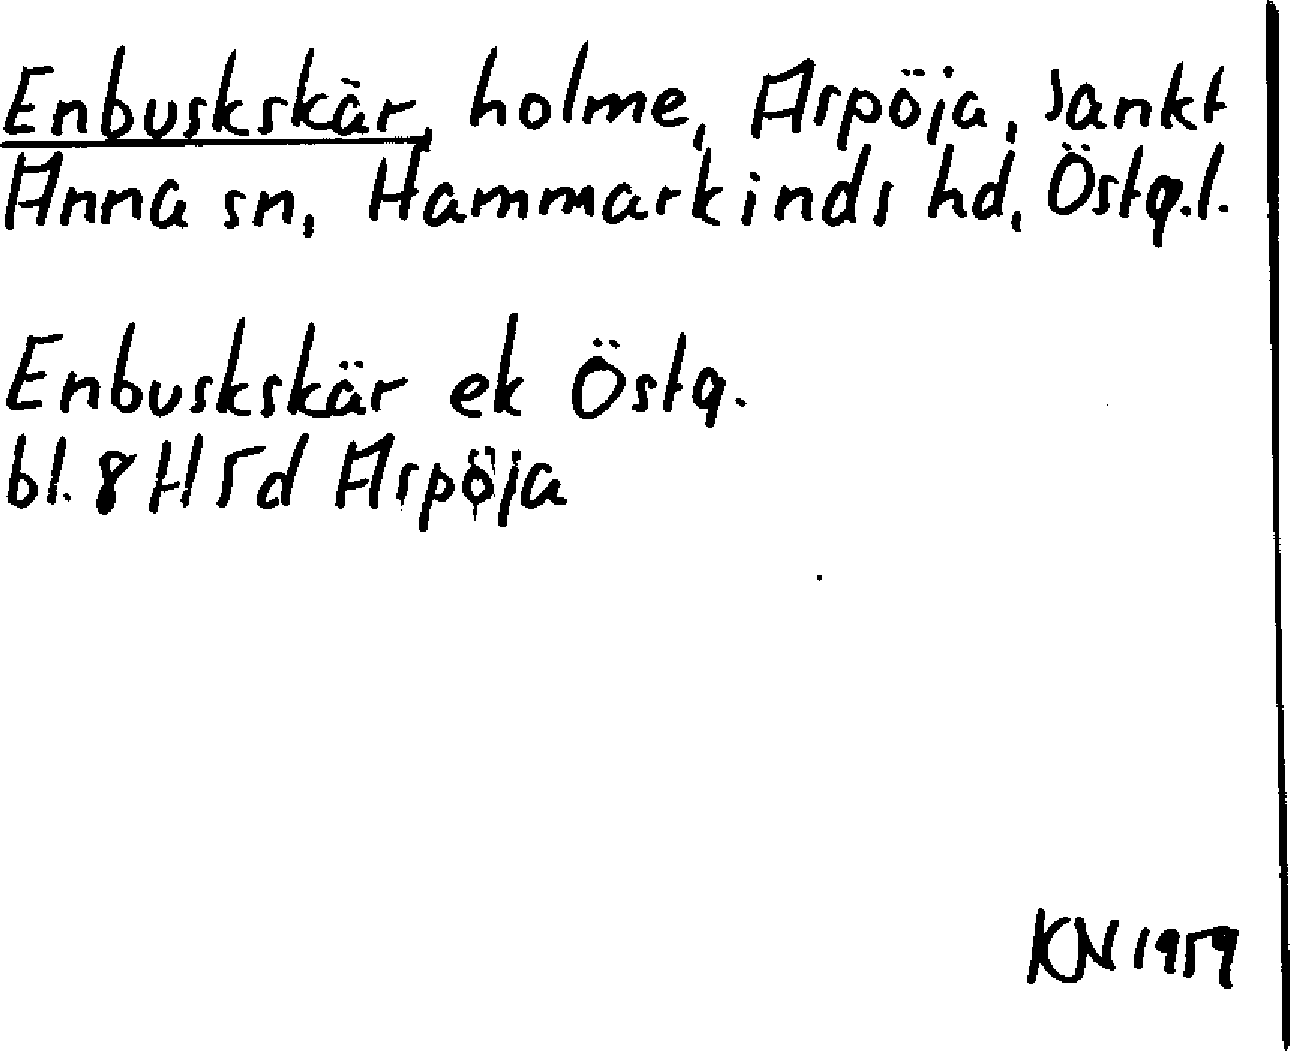 Enbuskskär, holme, Aspöja, Sankt
Anna sn, Hammarkinds hd, Östg.l.
Enbuskskär ek Östg.
bl. 8H5d Aspöja
KN 1959